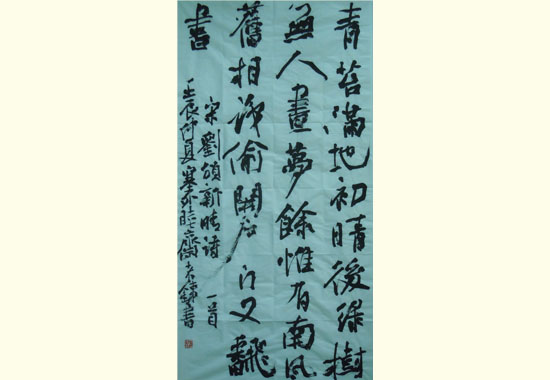 青苔滿地初晴後綠樹
無人晝夢餘惟有南風
舊相識偷開戶门又飜
書
宋劉頒新晴詩一首
壬辰仲夏塞外齋書